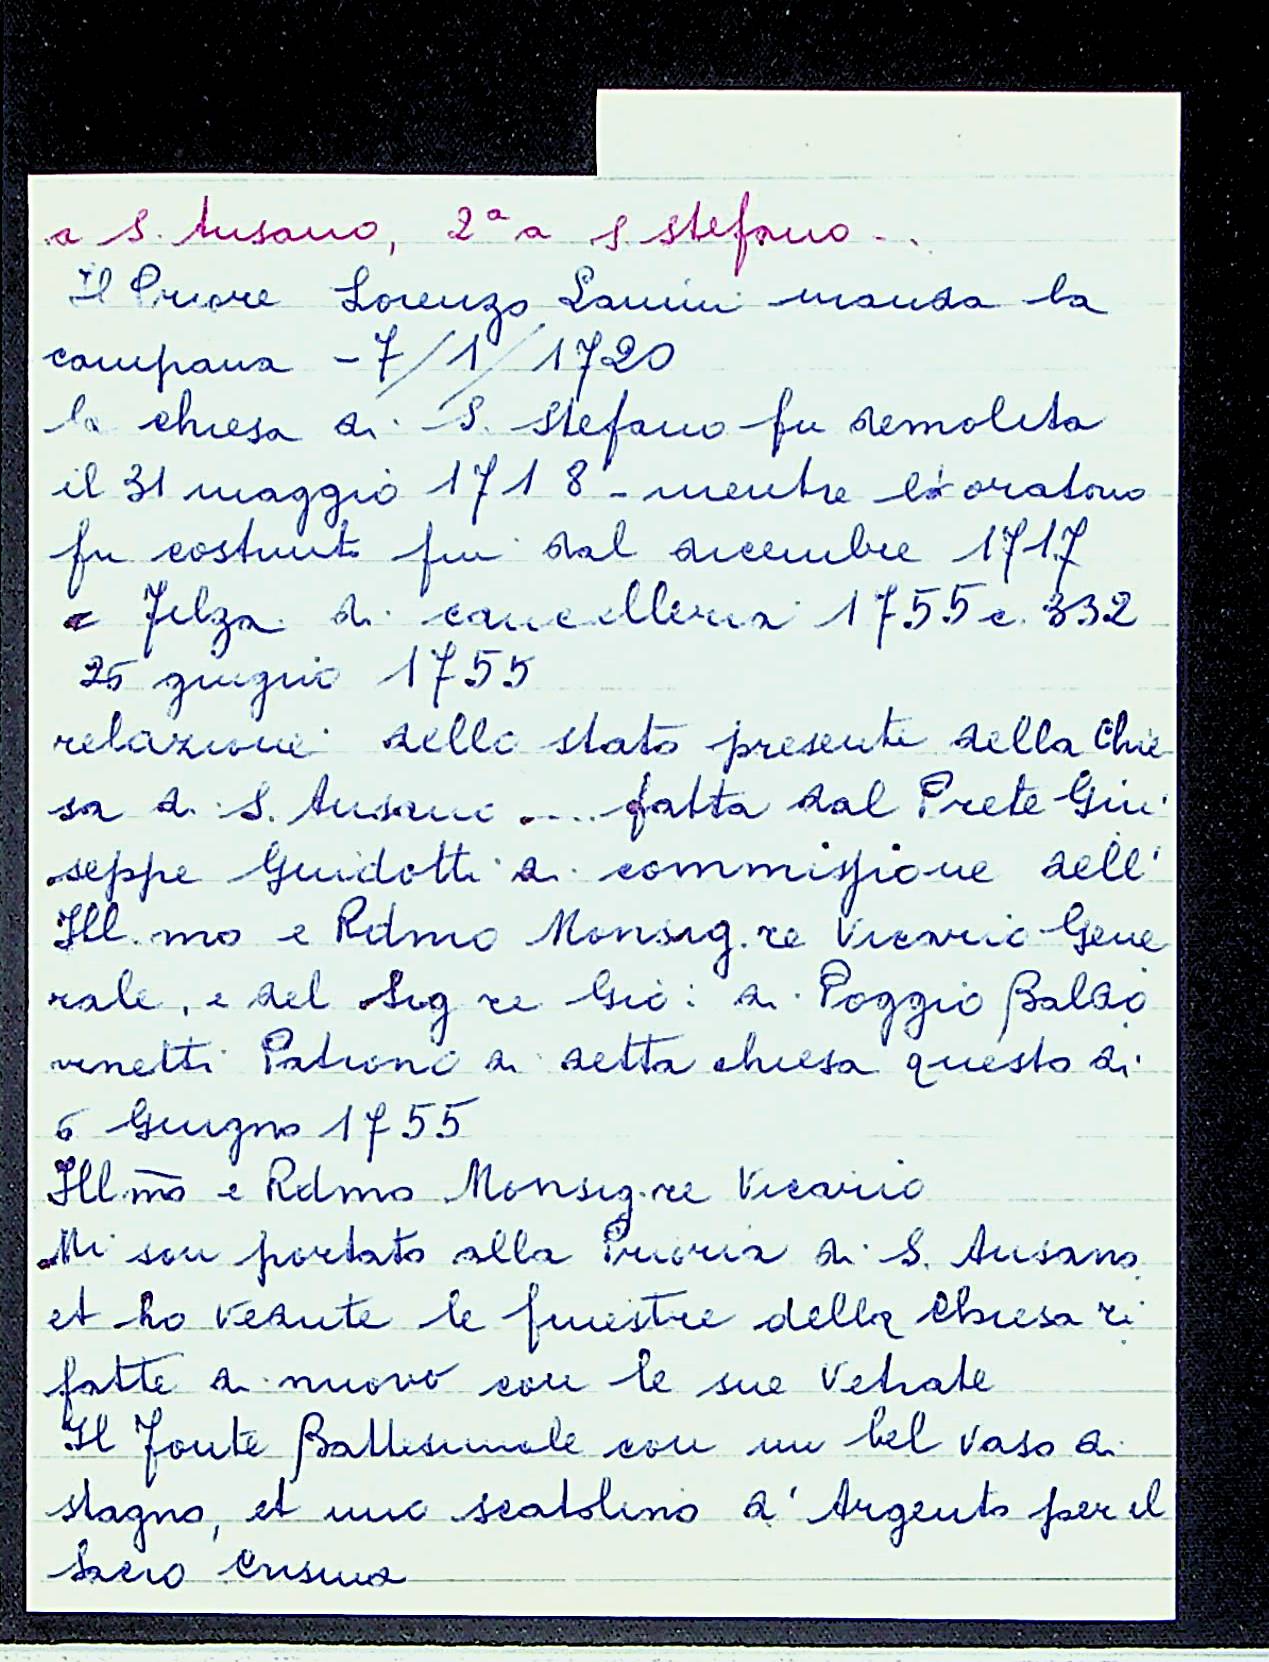 a S. Ansano, 2ª a S. Stefano..
Il Priore Lorenzo Lanini manda la
campana - 7/1/1720
la chiesa di S. Stefano fu demolita
il 31 maggio 1718 - mentre l'oratorio
fu costruito fin dal dicembre 1717
= Filza di cancelleria 1755 c. 332
25 giugno 1755
relazione dello stato presente della Chie
sa di S. Ansano .... fatta dal Prete Giu
seppe Guidotti di commissione dell'
Ill.mo e Rdmo Monsig.re Vicario Gene
rale, e del Sig re Gio: di Poggio Baldo
vinetti Patrono di detta chiesa questo di
6 Giugno 1755
Ill.mo e Rdmo Monsig.re Vicario
Mi son portato alla Prioria di S. Ansano
et ho vedute le finestre della Chiesa ri
fatte di nuovo con le sue Vetrate
Il Fonte Battesimale con un bel vaso di
stagno, et uno scatolino d'Argento per il
Sacro Crisma